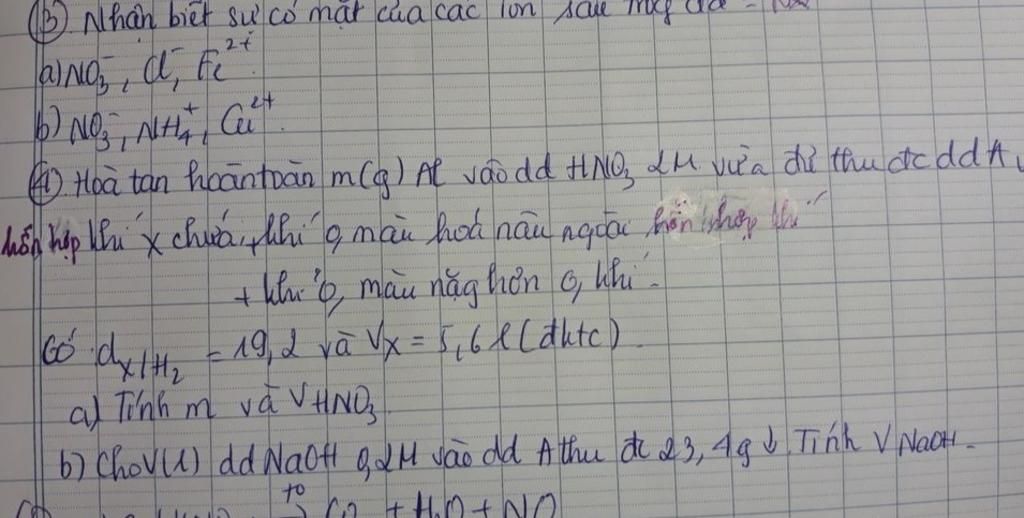 ③. Nhận biết sự có mặt của các ion sau
a) NO₃⁻, Cl⁻, Fe²⁺.
b) NO₃⁻, NH₄⁺, Cu²⁺.
④ Hoà tan hoàn toàn m(g) Al vào dd HNO₃ 2M vừa đủ thu đc dd A,
hỗn hợp khí X chứa, + khí o, màu hoá nâu ngoài hỗn hợp khí
+ khí o, màu nặg hơn o, khí.
Có d X/H₂ = 19,2 và Vx = 5,6 l (đktc).
a) Tính m và V HNO₃
b) Cho V(l) dd NaOH 0,2M vào dd A thu đc 23,4g ↓. Tính V NaOH.
t⁰ + H₂O + NO